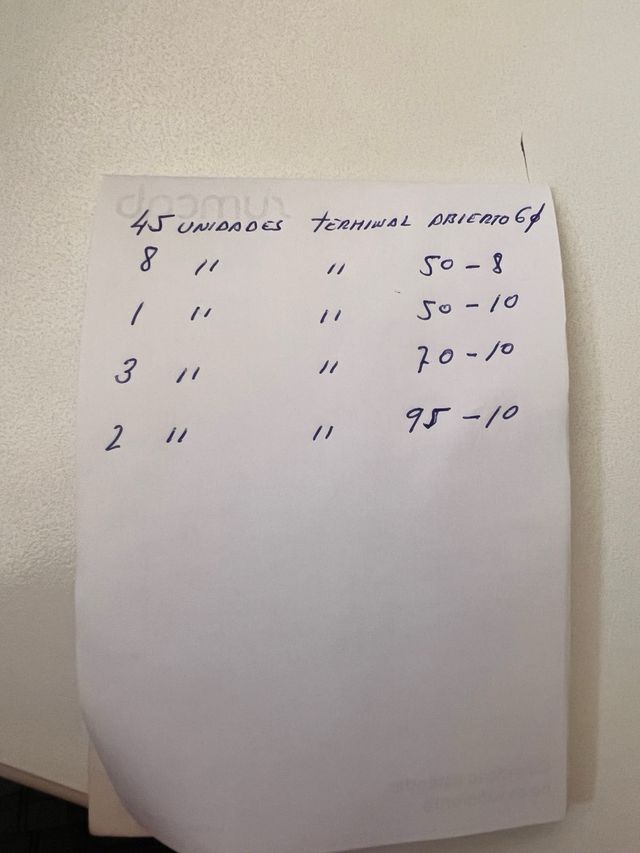 45 UNIDADES TERMINAL ABIERTO 6ϕ
8 " " 50-8
1 " " 50-10
3 " " 70-10
2 " " 95-10